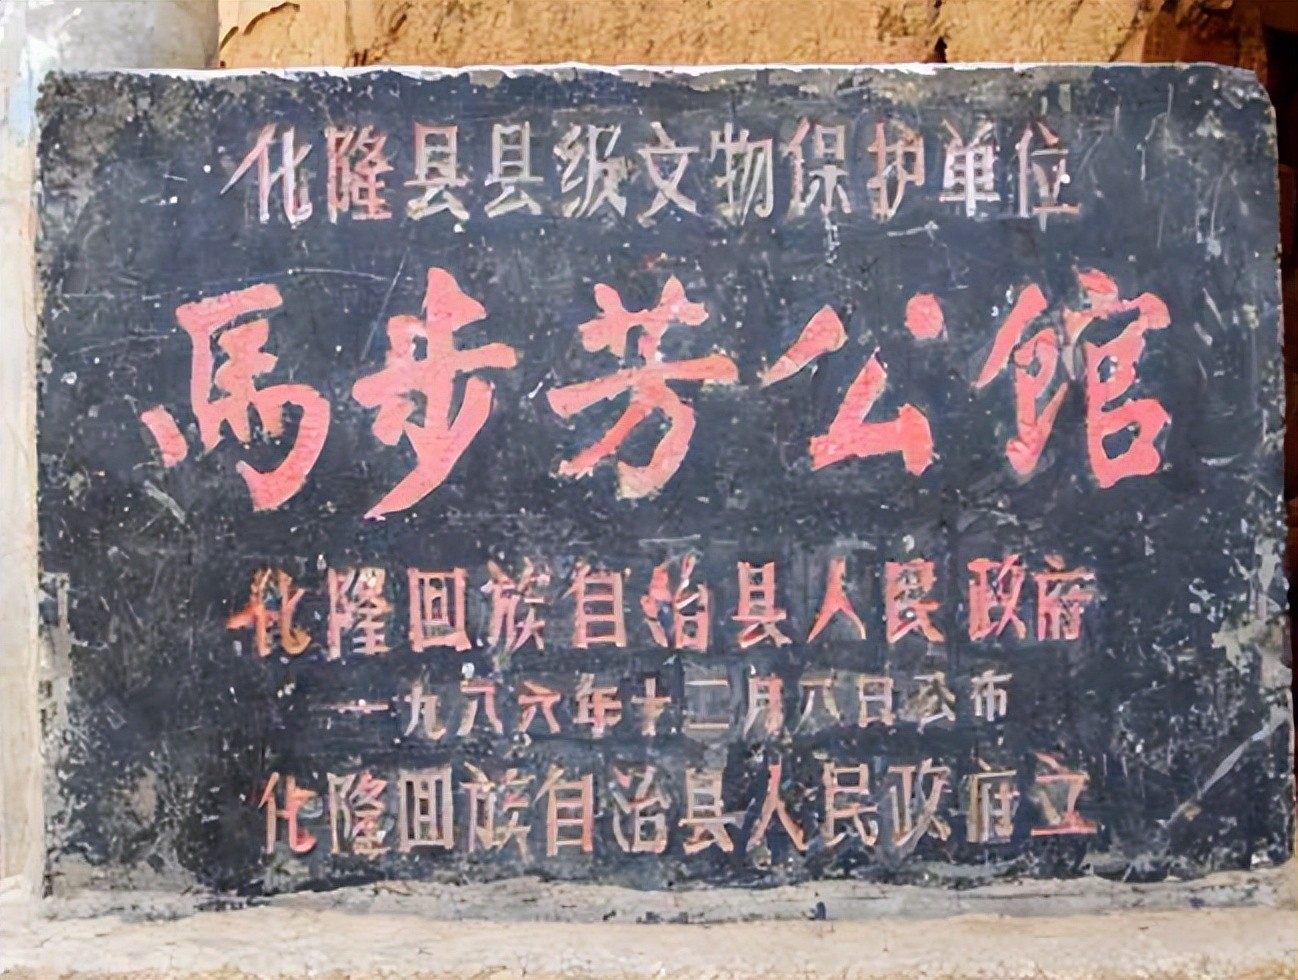 化隆县县级文物保护单位
馬步芳公馆
化隆回族自治县人民政府
一九八六年十二月八日公布
化隆回族自治县人民政府立